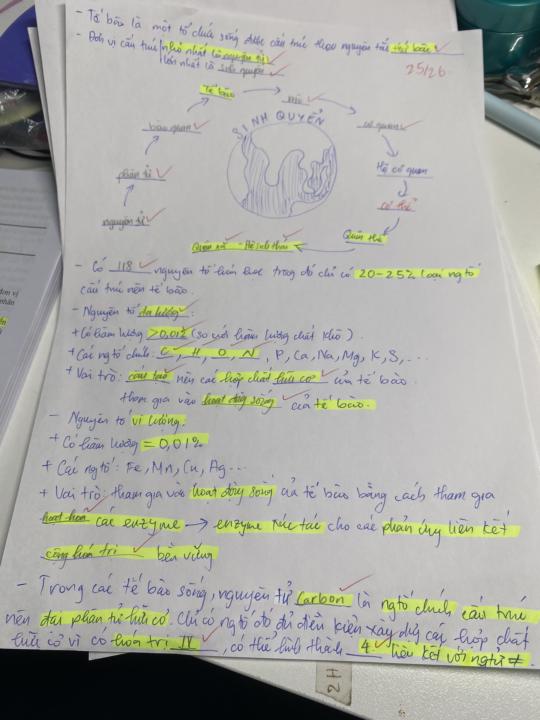 - Tế bào là một tổ chức sống được cấu trúc theo nguyên tắc thứ bậc.
- Đơn vị cấu trúc nhỏ nhất là nguyên tử
lớn nhất là sinh quyển
25/26
Tế bào
mô
bào quan
cơ quan
SINH QUYỂN
phân tử
Hệ cơ quan
cơ thể
nguyên tử
Quần thể
Quần xã - Hệ sinh thái
- Có 118 nguyên tố hóa học trong đó chỉ có 20-25% loại ngtố
cấu trúc nên tế bào.
- Nguyên tố đa lượng:
+ Có hàm lượng >0,01% (so với hàm lượng chất khô).
+ Các ngtố chính: C, H, O, N, P, Ca, Na, Mg, K, S, ...
+ Vai trò: cấu tạo nên các hợp chất hữu cơ của tế bào.
tham gia vào hoạt động sống của tế bào.
- Nguyên tố vi lượng.
+ Có hàm lượng = 0,01%
+ Các ngtố: Fe, Mn, Cu, Ag...
+ Vai trò: tham gia vào hoạt động sống của tế bào bằng cách tham gia
hoạt hóa các enzyme → enzyme xúc tác cho các phản ứng liên kết
cộng hóa trị bền vững
- Trong các tế bào sống, nguyên tử Carbon là ngtố chính cấu trúc
nên đại phân tử hữu cơ. Chỉ có ngtố đó đủ điều kiện xây dựng các hợp chất
hữu cơ vì có hóa trị IV, có thể hình thành 4 liên kết với ngtử ≠.
2H